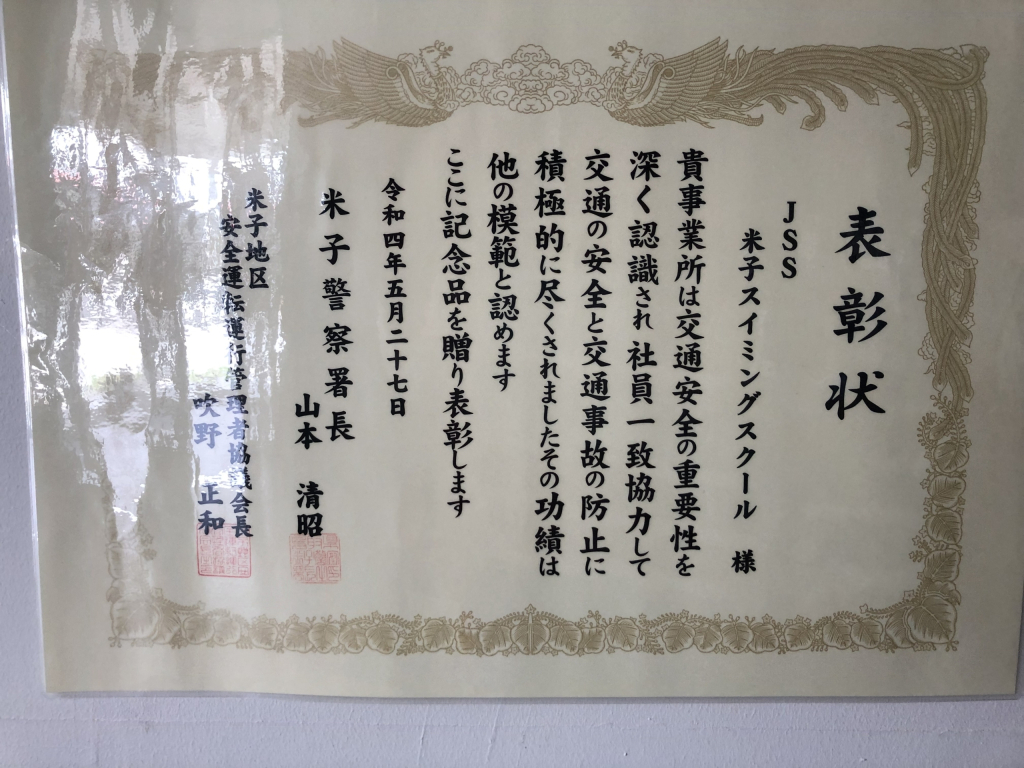 表彰状
JSS
米子スイミングスクール 様
貴事業所は交通安全の重要性を
深く認識され社員一致協力して
交通の安全と交通事故の防止に
積極的に尽くされましたその功績は
他の模範と認めます
ここに記念品を贈り表彰します
令和四年五月二十七日
米子警察署長
山本 清昭
米子地区
安全運転運行管理者協議会長
吹野 正和